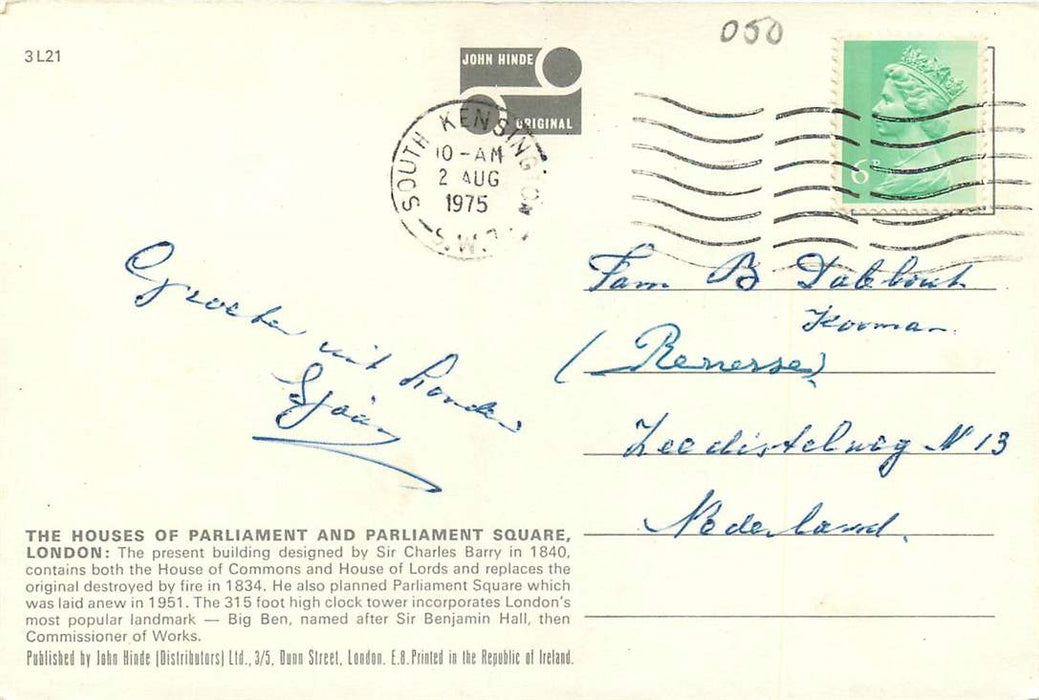 050
3L21
JOHN HINDE
ORIGINAL
SOUTH KENSINGTON
10-AM
2 AUG
1975
S.W.
6P
Groeten uit Londen
Sjaan
Fam B Dabbout
Kooman.
(Renesse)
Zeedistelweg N 13
Nederland.
THE HOUSES OF PARLIAMENT AND PARLIAMENT SQUARE,
LONDON: The present building designed by Sir Charles Barry in 1840,
contains both the House of Commons and House of Lords and replaces the
original destroyed by fire in 1834. He also planned Parliament Square which
was laid anew in 1951. The 315 foot high clock tower incorporates London's
most popular landmark — Big Ben, named after Sir Benjamin Hall, then
Commissioner of Works.
Published by John Hinde (Distributors) Ltd., 3/5, Dunn Street, London. E.8. Printed in the Republic of Ireland.